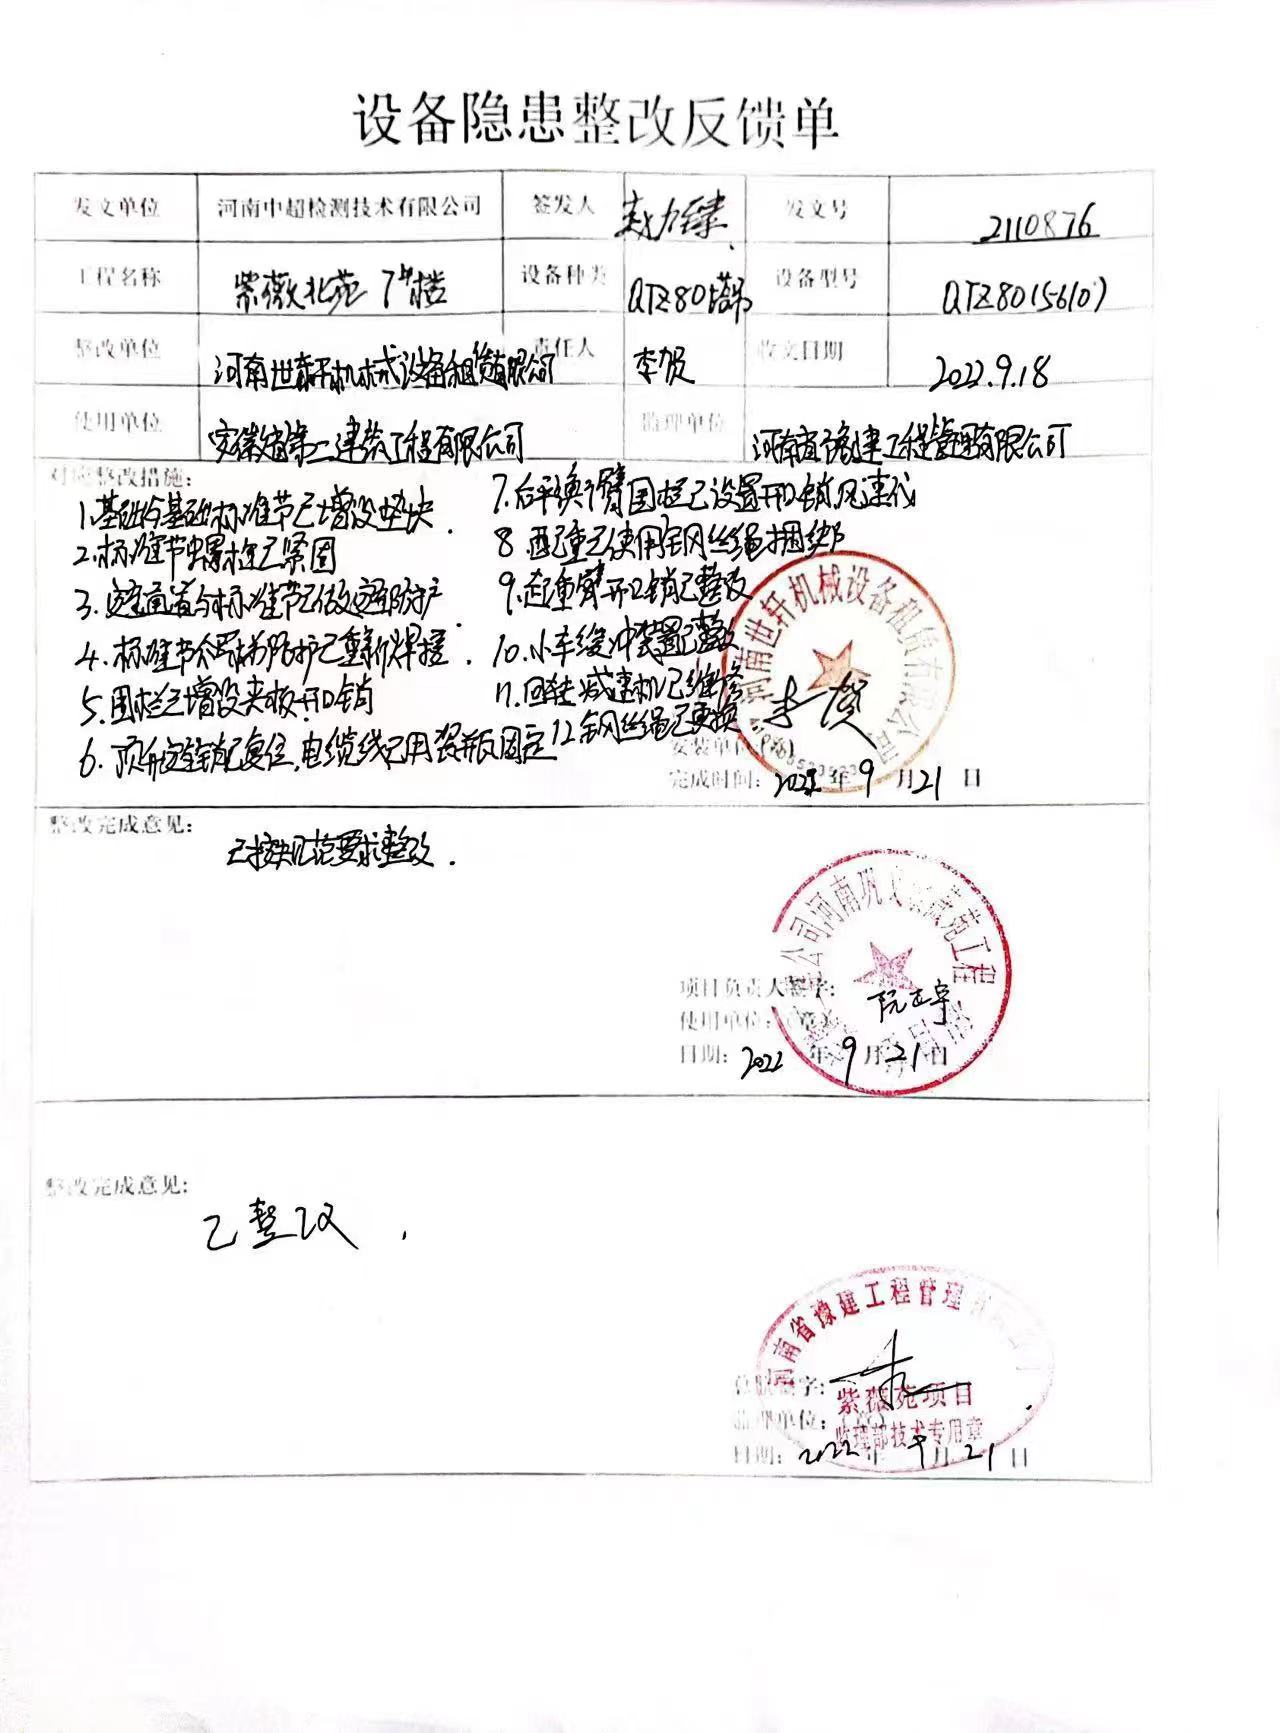 设备隐患整改反馈单
发文单位 河南中超检测技术有限公司 签发人 发文号 2110876
工程名称 紫薇北苑7#楼 设备种类 QTZ80塔吊 设备型号 QTZ80(5610)
整改单位 河南世轩机械设备租赁有限公司 责任人 李贺 收文日期 2022.9.18
使用单位 安徽省第二建筑工程有限公司 监理单位 河南省豫建工程管理有限公司
对应整改措施:
1.基础与基础标准节已增设垫块.
2.标准节螺栓已紧固
3.
4.标准节 防护已重新焊接.
5.围栏已增设夹板开口销
6.顶升 销已复位,电缆线已用 固定
7.后平衡臂围栏已设置开口销,风速仪
8.配重已使用钢丝绳捆绑
9.起重臂开口销已整改
10.小车缓冲装置已整改
11.回转减速机已维修
12.钢丝绳已更换
河南世轩机械设备租赁有限公司
李贺
安装单位(章)
完成时间: 2022年9月21日
整改完成意见:
已按规范要求整改.
项目负责人签字: 阮正宇
使用单位:(章)
日期: 2022年9月21日
整改完成意见:
已整改.
河南省豫建工程管理有限公司
紫薇苑项目
监理部技术专用章
总监签字:
监理单位:(章)
日期: 2022年9月21日